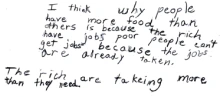 I think why people
have more food than
others is because the rich
have jobs poor people can't
get jobs because the jobs
are already taken.
The rich are takeing more
than they need.